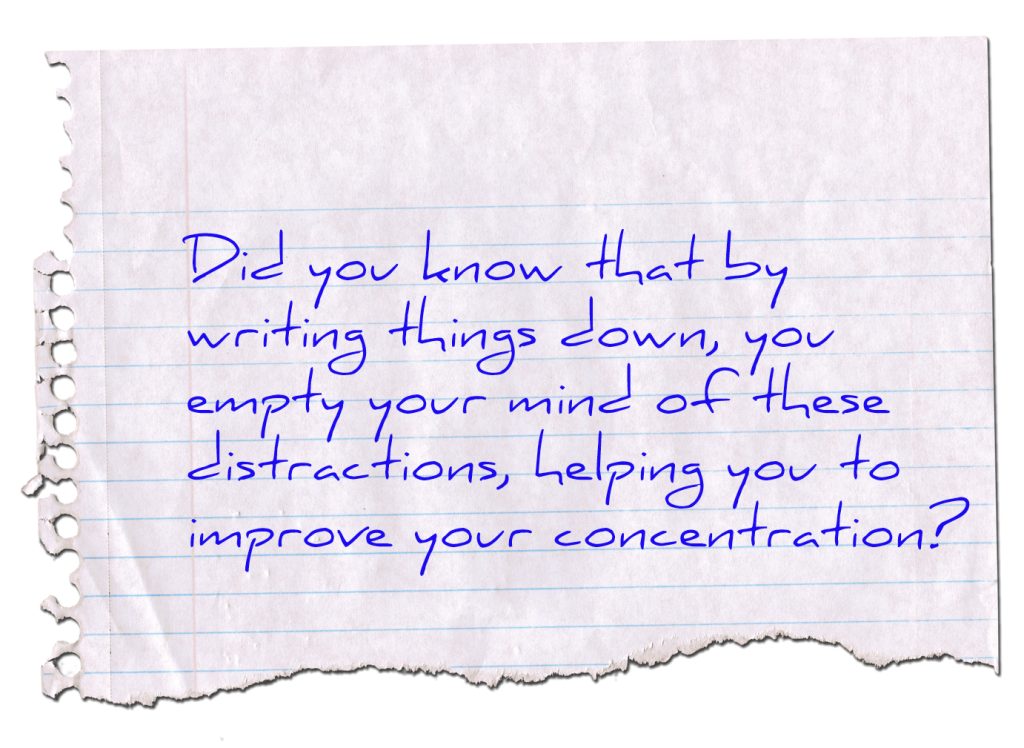 Did you know that by
writing things down, you
empty your mind of these
distractions, helping you to
improve your concentration?